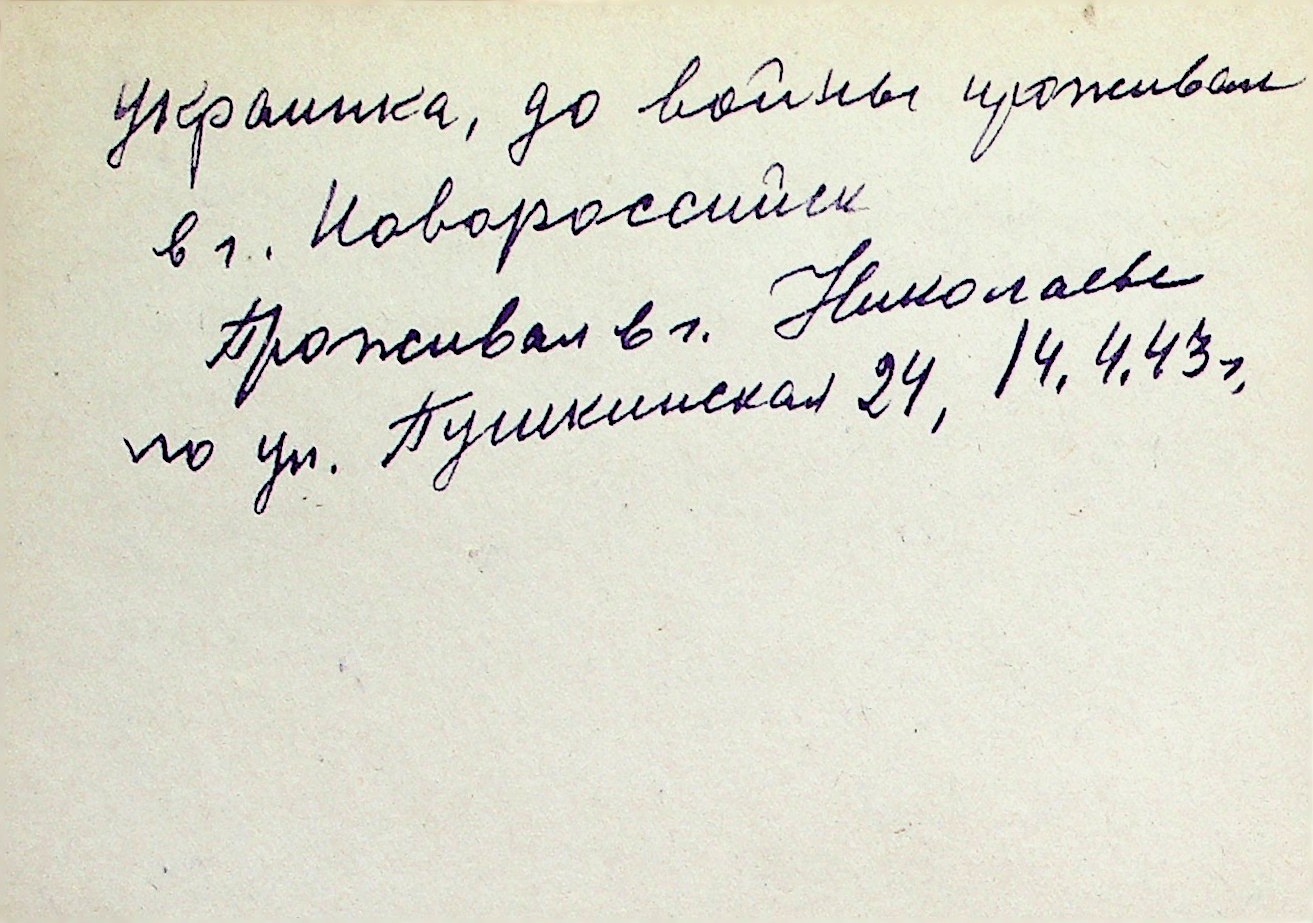 украинка, до войны проживал
в г. Новороссийск
Проживал в г. Николаеве
по ул. Пушкинская 24, 14.4.43 г.